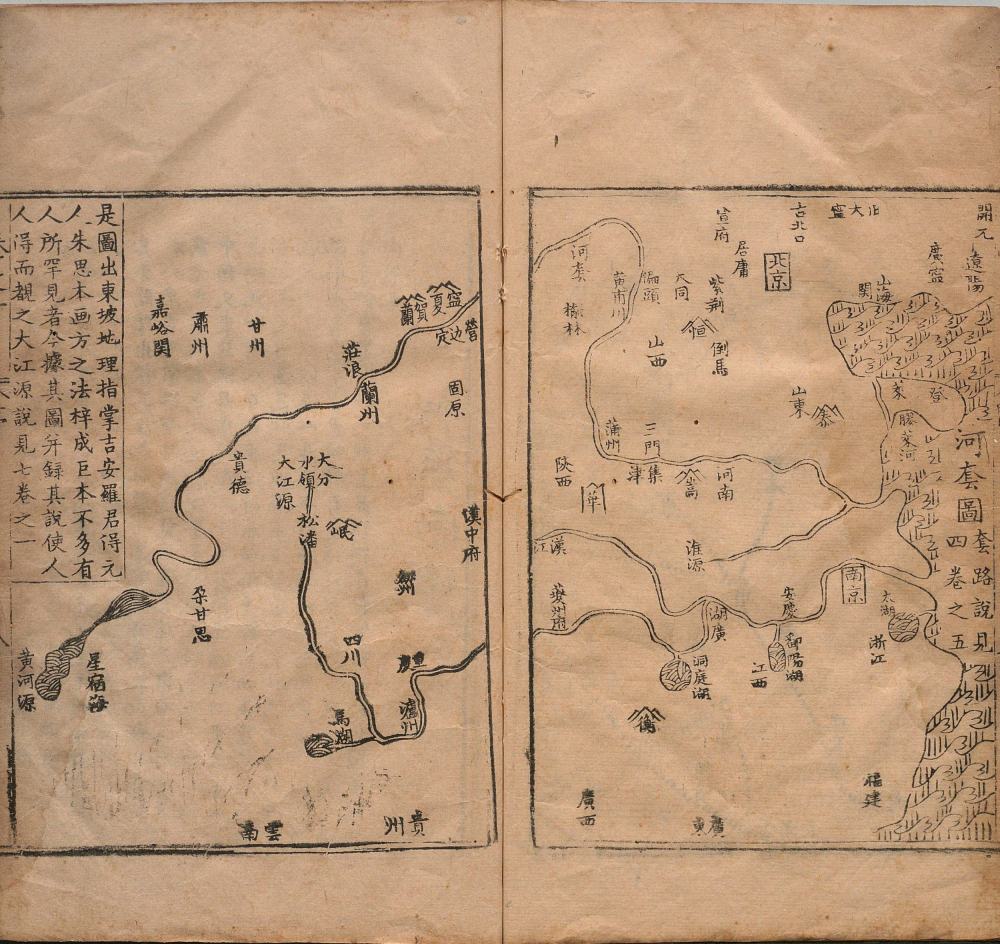 河套圖
套路說見
四卷之五
開元
遼陽
廣寧
山海
関
大寧
古北口
北京
宣府
居庸
紫荆
倒馬
大同
偏頭
黄甫川
河套
榆林
山西
恒
山東
泰
登
萊
膠萊河
蒲州
三門
集津
嵩
河南
陝西
華
淮源
漢江
夔州府
南京
安慶
太湖
浙江
湖廣
洞庭湖
鄱陽湖
江西
衡
福建
廣西
廣東
寧夏
賀蘭
营
定边
莊浪
蘭州
固原
甘州
肅州
嘉峪関
貴德
大分水嶺
大江源
松潘
岷
漢中府
朶甘思
四川
重慶
瀘州
馬湖
星宿海
黄河源
雲南
貴州
是圖出東坡地理指掌吉安羅君得元
人朱思本画方之法梓成巨本不多有
人所罕見者今據其圖并録其說使人
人得而覩之大江源說見七卷之一